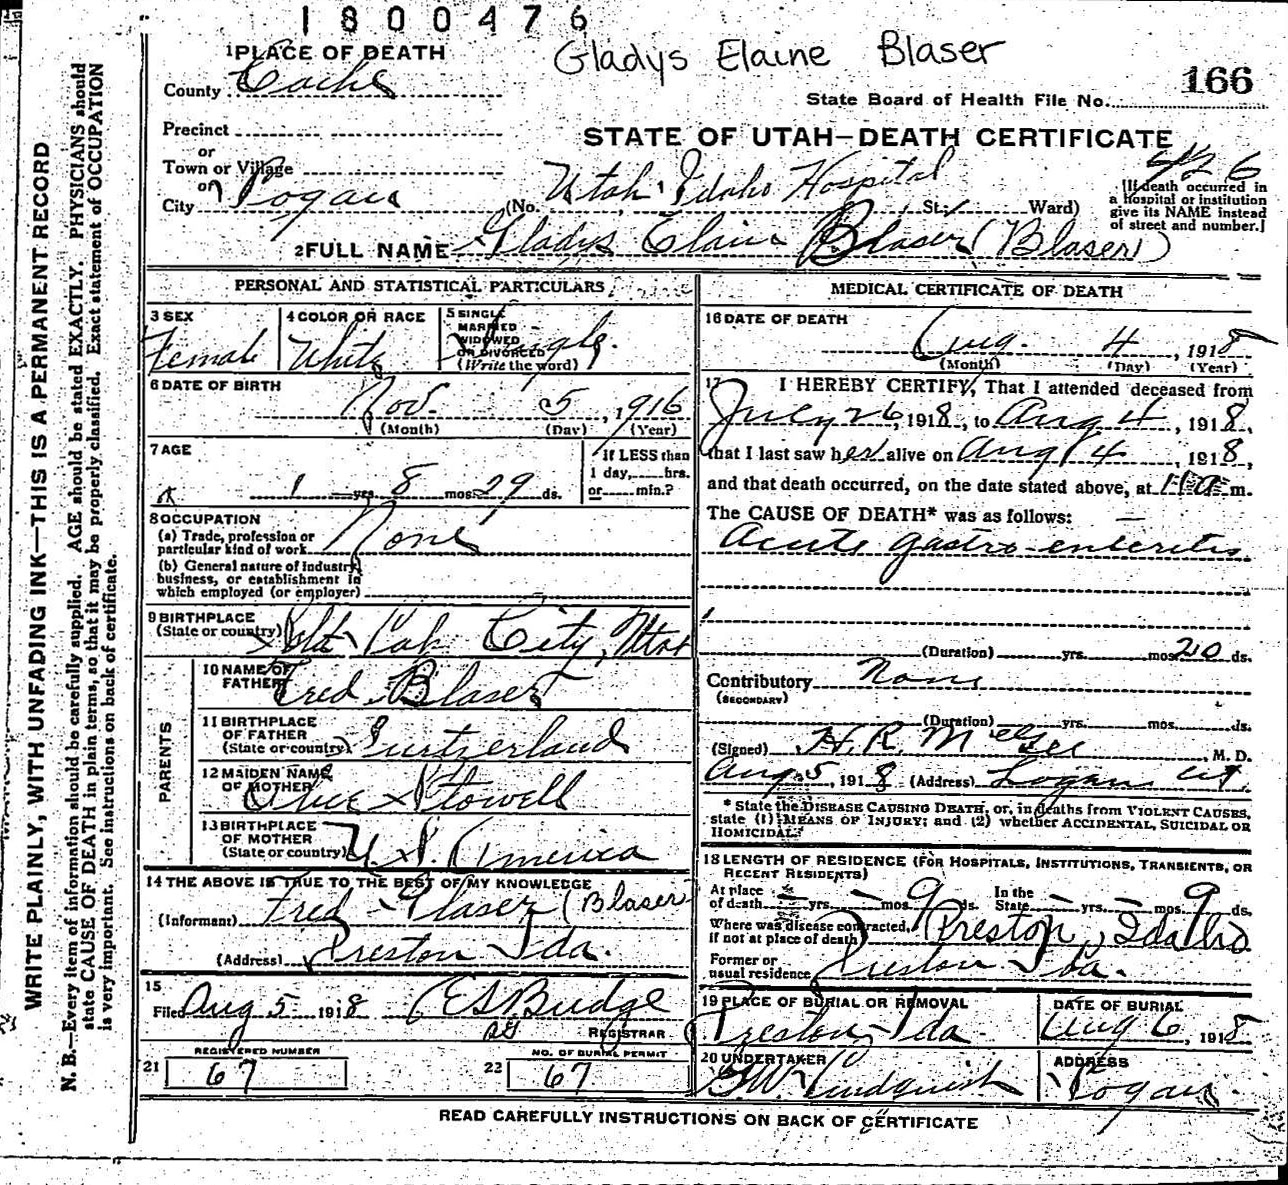 1800476
Gladys Elaine Blaser
166
1 PLACE OF DEATH
County Cache
State Board of Health File No.
Precinct
STATE OF UTAH—DEATH CERTIFICATE
or
Town or Village
426
or
City Logan (No. Utah Idaho Hospital St.; Ward)
[If death occurred in
a hospital or institution
give its NAME instead
of street and number.]
2 FULL NAME Gladys Elain Blaser (Blaser)
PERSONAL AND STATISTICAL PARTICULARS
3 SEX
Female
4 COLOR OR RACE
White
5 SINGLE
MARRIED
WIDOWED
OR DIVORCED
(Write the word)
Single.
6 DATE OF BIRTH
Nov. 5, 1916
(Month) (Day) (Year)
7 AGE
1 yrs. 8 mos. 29 ds.
If LESS than
1 day, hrs.
or min.?
8 OCCUPATION
(a) Trade, profession or
particular kind of work None
(b) General nature of Industry,
business, or establishment in
which employed (or employer)
9 BIRTHPLACE
(State or country) Salt Lak City, Utah
PARENTS
10 NAME OF
FATHER Fred Blaser
11 BIRTHPLACE
OF FATHER
(State or country) Switzerland
12 MAIDEN NAME
OF MOTHER Stowell
13 BIRTHPLACE
OF MOTHER
(State or country) U. S. America
14 THE ABOVE IS TRUE TO THE BEST OF MY KNOWLEDGE
(Informant) Fred Blaser (Blaser
(Address) Preston Ida.
15
Filed Aug 5 1918 E S Budge
REGISTRAR
REGISTERED NUMBER
21 67
NO. OF BURIAL PERMIT
22 67
MEDICAL CERTIFICATE OF DEATH
16 DATE OF DEATH
Aug. 4, 1918
(Month) (Day) (Year)
17 I HEREBY CERTIFY, That I attended deceased from
July 26, 1918, to Aug 4, 1918,
that I last saw her alive on Aug 4, 1918,
and that death occurred, on the date stated above, at m.
The CAUSE OF DEATH* was as follows:
Acute gastro-enteritis
(Duration) yrs. mos. 20 ds.
Contributory None
(SECONDARY)
(Duration) yrs. mos. ds.
(Signed) H. R. McGee M. D.
Aug. 5, 1918 (Address) Logan
* State the DISEASE CAUSING DEATH, or, in deaths from VIOLENT CAUSES,
state (1) MEANS OF INJURY; and (2) whether ACCIDENTAL, SUICIDAL OR
HOMICIDAL.
18 LENGTH OF RESIDENCE (FOR HOSPITALS, INSTITUTIONS, TRANSIENTS, OR
RECENT RESIDENTS)
At place
of death yrs. mos. 9 ds.
In the
State yrs. mos. 9 ds.
Where was disease contracted,
if not at place of death? Preston, Idaho
Former or
usual residence Preston Ida.
19 PLACE OF BURIAL OR REMOVAL
Preston, Ida.
DATE OF BURIAL
Aug 6, 1918
20 UNDERTAKER
Lindquist
ADDRESS
Logan.
READ CAREFULLY INSTRUCTIONS ON BACK OF CERTIFICATE
WRITE PLAINLY, WITH UNFADING INK—THIS IS A PERMANENT RECORD
N. B.—Every item of information should be carefully supplied. AGE should be stated EXACTLY. PHYSICIANS should
state CAUSE OF DEATH in plain terms, so that it may be properly classified. Exact statement of OCCUPATION
is very important. See instructions on back of certificate.